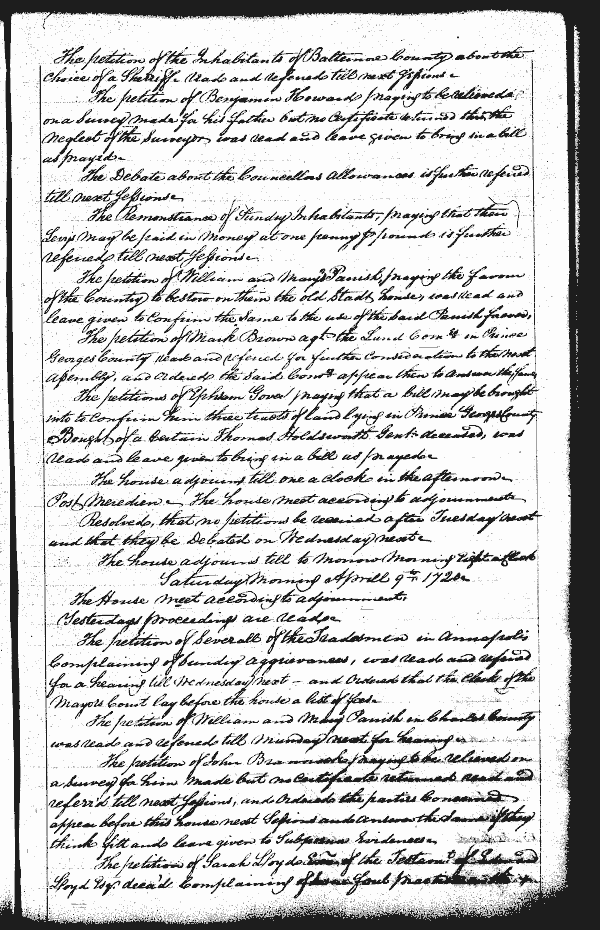 The petition of the Inhabitants of Baltemore County about the
Choice of a Sheriffe read and referred till next Sessions.
The petition of Benjamin Howard praying to be relieved
on a Survey made for his father but no Certificate returned thro' the
neglect of the Surveyor, was read and leave given to bring in a bill
as prayed.
The Debate about the Councellors Allowances is further referred
till next Sessions.
The Remonstrance of Sundry Inhabitants, praying that their
Levys may be paid in Money at one penny p pound is further
referred till next Sessions.
The petition of William and Mary Parish, praying the favour
of the Country to bestow on them the old Stadt house, was read and
leave given to Confirm the Same to the use of the Said Parish forever,
The petition of Mark Brown agt the Land Comrs in Prince
Georges County read and referred for further Consideration to the next
Assembly, and ordered the Said Comrs appear then to answer the Same
The petitions of Ephram Gover praying that a bill may be brought
into to Confirm him three tracts of land lying in Prince Georges County
Bought of a Certain Thomas Holdsworth Gent. deceased, was
read and leave given to bring in a bill as prayed.
The house adjourns till one a Clock in the afternoon.
Post Meredien. The house meet according to adjournment
Resolved, that no petitions be received after Tuesday next
and that they be Debated on Wednesday next.
The house adjourns till to Morrow Morning Eight a Clock
Saturday Morning Aprill 9th. 172
The House meet according to adjournment.
Yesterdays proceedings are read.
The petition of Severall of the Tradesmen in Annapolis
Complaining of Sundry aggrievances, was read and referred
for a hearing till Wednesday next - and Ordered that the Clerk of the
Mayors Court lay before the house a list of fees.
The petition of William and Mary Parish in Charles County
was read and referred till Munday next for hearing.
The petition of John praying to be relieved on
a Survey for him made but no Certificate returned read and
referr'd till next Sessions, and Ordered the parties Concerned
appear before this house next Sessions and answer the Same if they
think fitt and leave given to Subpoena Evidences.
The petition of Sarah Lloyd of the of Edward
Lloyd Esqr. decea'd Complaining of Some foul practices in the